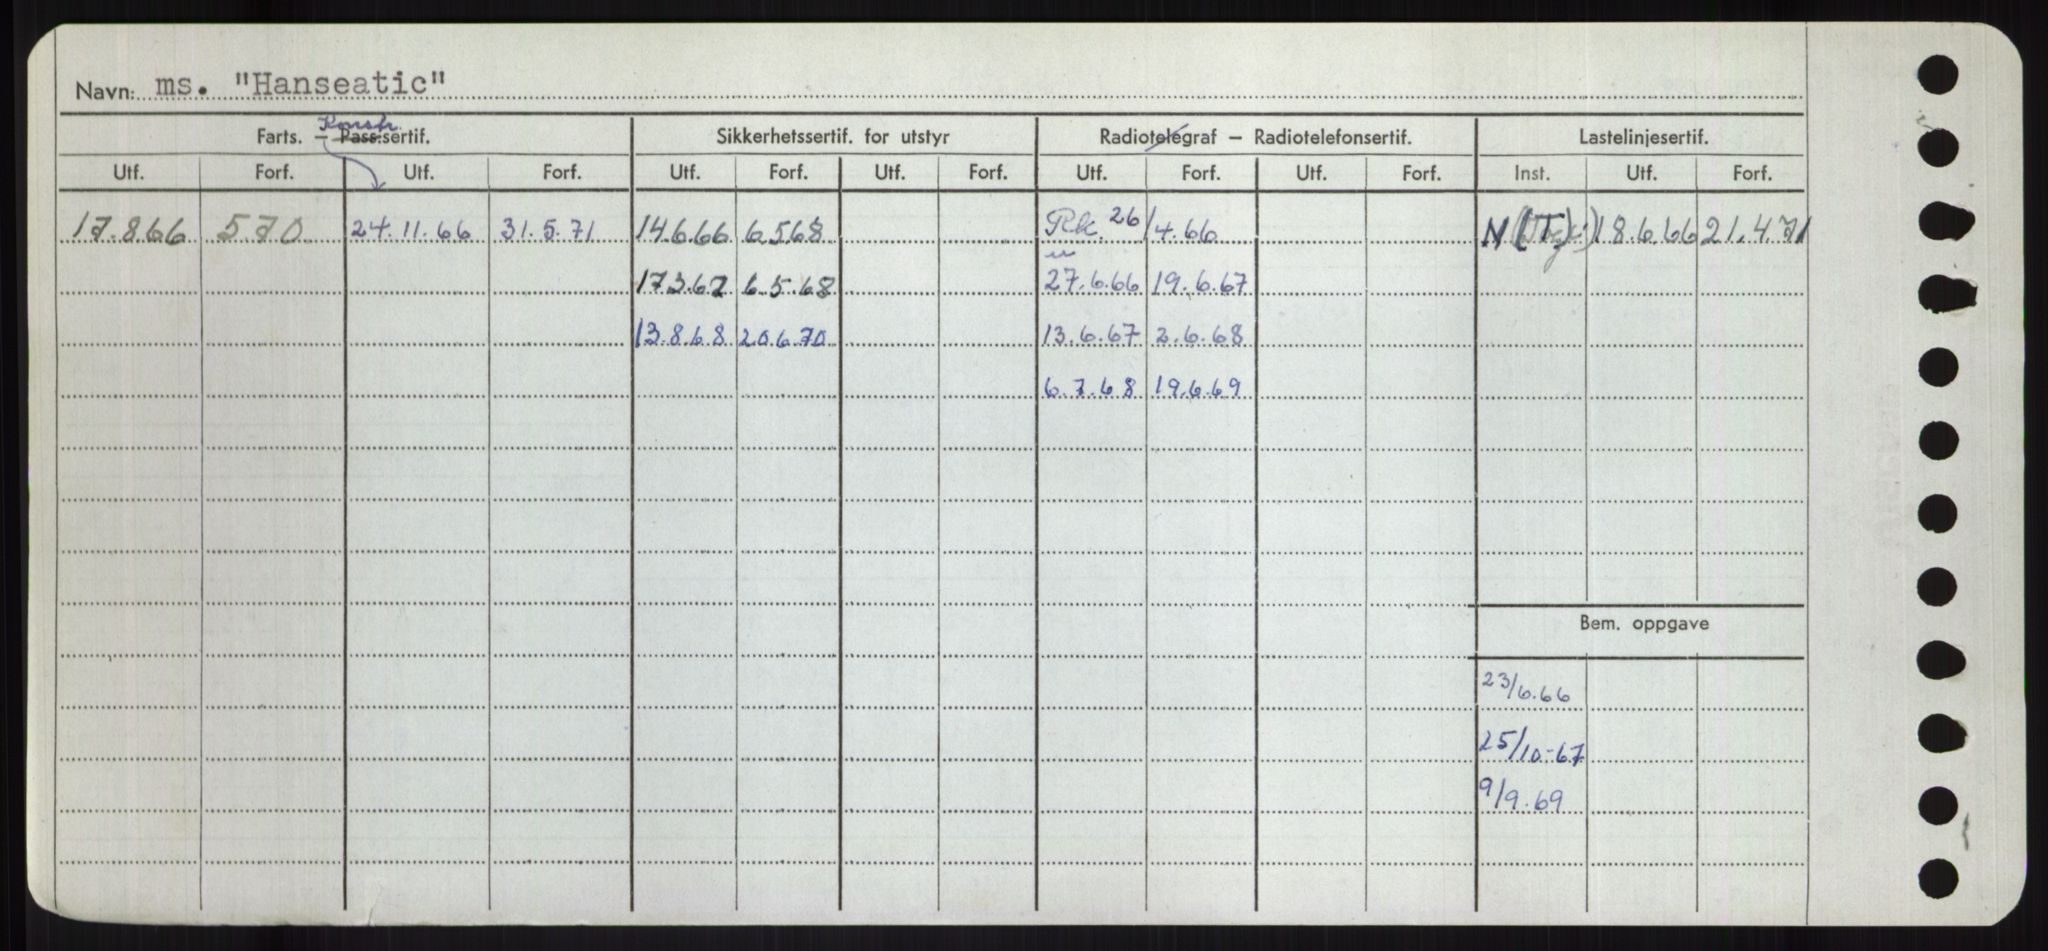 Navn: ms. "Hanseatic"
Konstr.
Farts. – Pass.sertif. Sikkerhetssertif. for utstyr Radiotelegraf – Radiotelefonsertif. Lastelinjesertif.
Utf. Forf. Utf. Forf. Utf. Forf. Utf. Forf. Utf. Forf. Utf. Forf. Inst. Utf. Forf.
17.8.66 5.70 24.11.66 31.5.71 14.6.66 6.5.68 Rk. 26/4.66 N (T) 18.6.66 21.4.71
17.3.67 6.5.68 27.6.66 19.6.67
13.8.68 20.6.70 13.6.67 2.6.68
6.7.68 19.6.69
Bem. oppgave
23/6.66
25/10-67
9/9.69